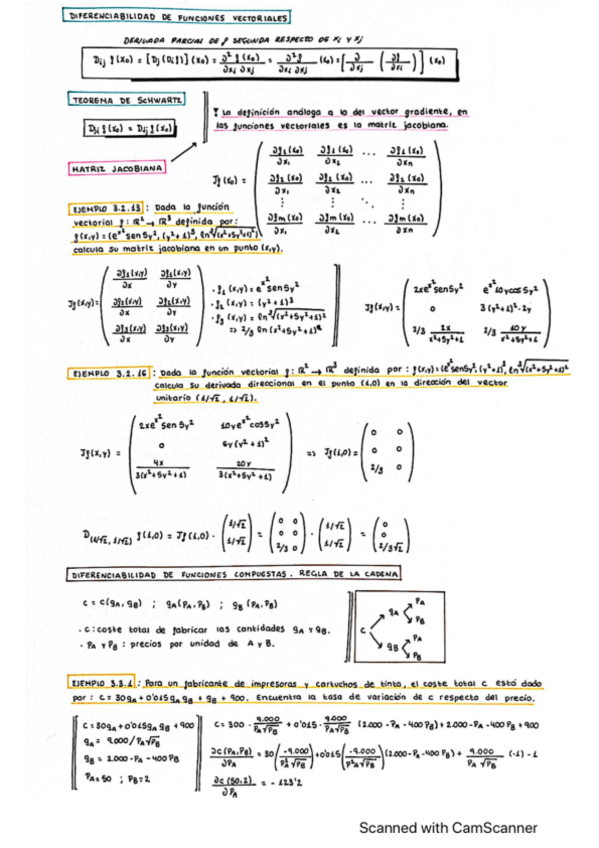 DIFERENCIABILIDAD DE FUNCIONES VECTORIALES
DERIVADA PARCIAL DE f SEGUNDA RESPECTO DE xi Y xj
Dij f(x0) = [Dj (Di f)] (x0) = ∂² f(x0) / ∂xi ∂xj = ∂²f / ∂xi ∂xj (x0) = [∂ / ∂xj (∂f / ∂xi)] (x0)
TEOREMA DE SCHWARTZ
Dji f(x0) = Dij f(x0)
Y la definición análoga a la del vector gradiente, en
las funciones vectoriales es la matriz jacobiana.
MATRIZ JACOBIANA
Jf(x0) = ( ∂f1(x0)/∂x1 ∂f1(x0)/∂x2 ... ∂f1(x0)/∂xn
∂f2(x0)/∂x1 ∂f2(x0)/∂x2 ... ∂f2(x0)/∂xn
⋮ ⋮ ⋱ ⋮
∂fm(x0)/∂x1 ∂fm(x0)/∂x2 ... ∂fm(x0)/∂xn )
EJEMPLO 3.2.13 : Dada la función
vectorial f: R² → R³ definida por:
calcula su matriz jacobiana en un punto (x,y).
Jf(x,y) = ( ∂f1(x,y)/∂x ∂f1(x,y)/∂y
∂f2(x,y)/∂x ∂f2(x,y)/∂y
∂f3(x,y)/∂x ∂f3(x,y)/∂y )
· f1(x,y) = e^x² sen5y²
· f2(x,y) = (y²+1)³
· f3(x,y) = ln ³√(x²+5y²+1)²
=> 2/3 ln (x²+5y²+1)
Jf(x,y) = ( 2xe^x² sen5y² e^x² 10y cos5y²
0 3(y²+1)²·2y
2/3 2x/x²+5y²+1 2/3 10y/x²+5y²+1 )
EJEMPLO 3.2.16 : Dada la función vectorial f: R² → R³ definida por : f(x,y) = (e^x² sen5y², (y²+1)³, ln ³√(x²+5y²+1)²
calcula su derivada direccional en el punto (1,0) en la dirección del vector
unitario (1/√2, 1/√2).
Jf(x,y) = ( 2xe^x² sen5y² 10ye^x² cos5y²
0 6y(y²+1)²
4x/3(x²+5y²+1) 20y/3(x²+5y²+1) ) => Jf(1,0) = ( 0 0
0 0
2/3 0 )
D(1/√2, 1/√2) f(1,0) = Jf(1,0) · ( 1/√2 1/√2 ) = ( 0 0 0 0 2/3 0 ) · ( 1/√2 1/√2 ) = ( 0 0 2/3√2 )
DIFERENCIABILIDAD DE FUNCIONES COMPUESTAS. REGLA DE LA CADENA
C = C(qA, qB) ; qA(PA, PB) ; qB(PA, PB)
· C: coste total de fabricar las cantidades qA y qB.
· PA y PB : precios por unidad de A y B.
C qA PA PB qB PA PB
EJEMPLO 3.3.1 : Para un fabricante de impresoras y cartuchos de tinta, el coste total C está dado
por : C = 30qA + 0'015qA qB + qB + 900. Encuentra la tasa de variación de C respecto del precio.
C = 30qA + 0'015qA qB + 900
qA = 9.000/PA√PB
qB = 2.000 - PA - 400 PB
PA = 50 ; PB = 2
C = 300 · 9.000/PA√PB + 0'015 · 9.000/PA√PB (2.000 - PA - 400 PB) + 2.000 - PA - 400 PB + 900
∂C(PA,PB)/∂PA = 30 (-9.000/P²A√PB) + 0'015 (-9.000/P²A√PB) (2.000 - PA - 400 PB) + 9.000/PA√PB (-1) - 1
∂C(50,2)/∂PA = - 123'2
Scanned with CamScanner